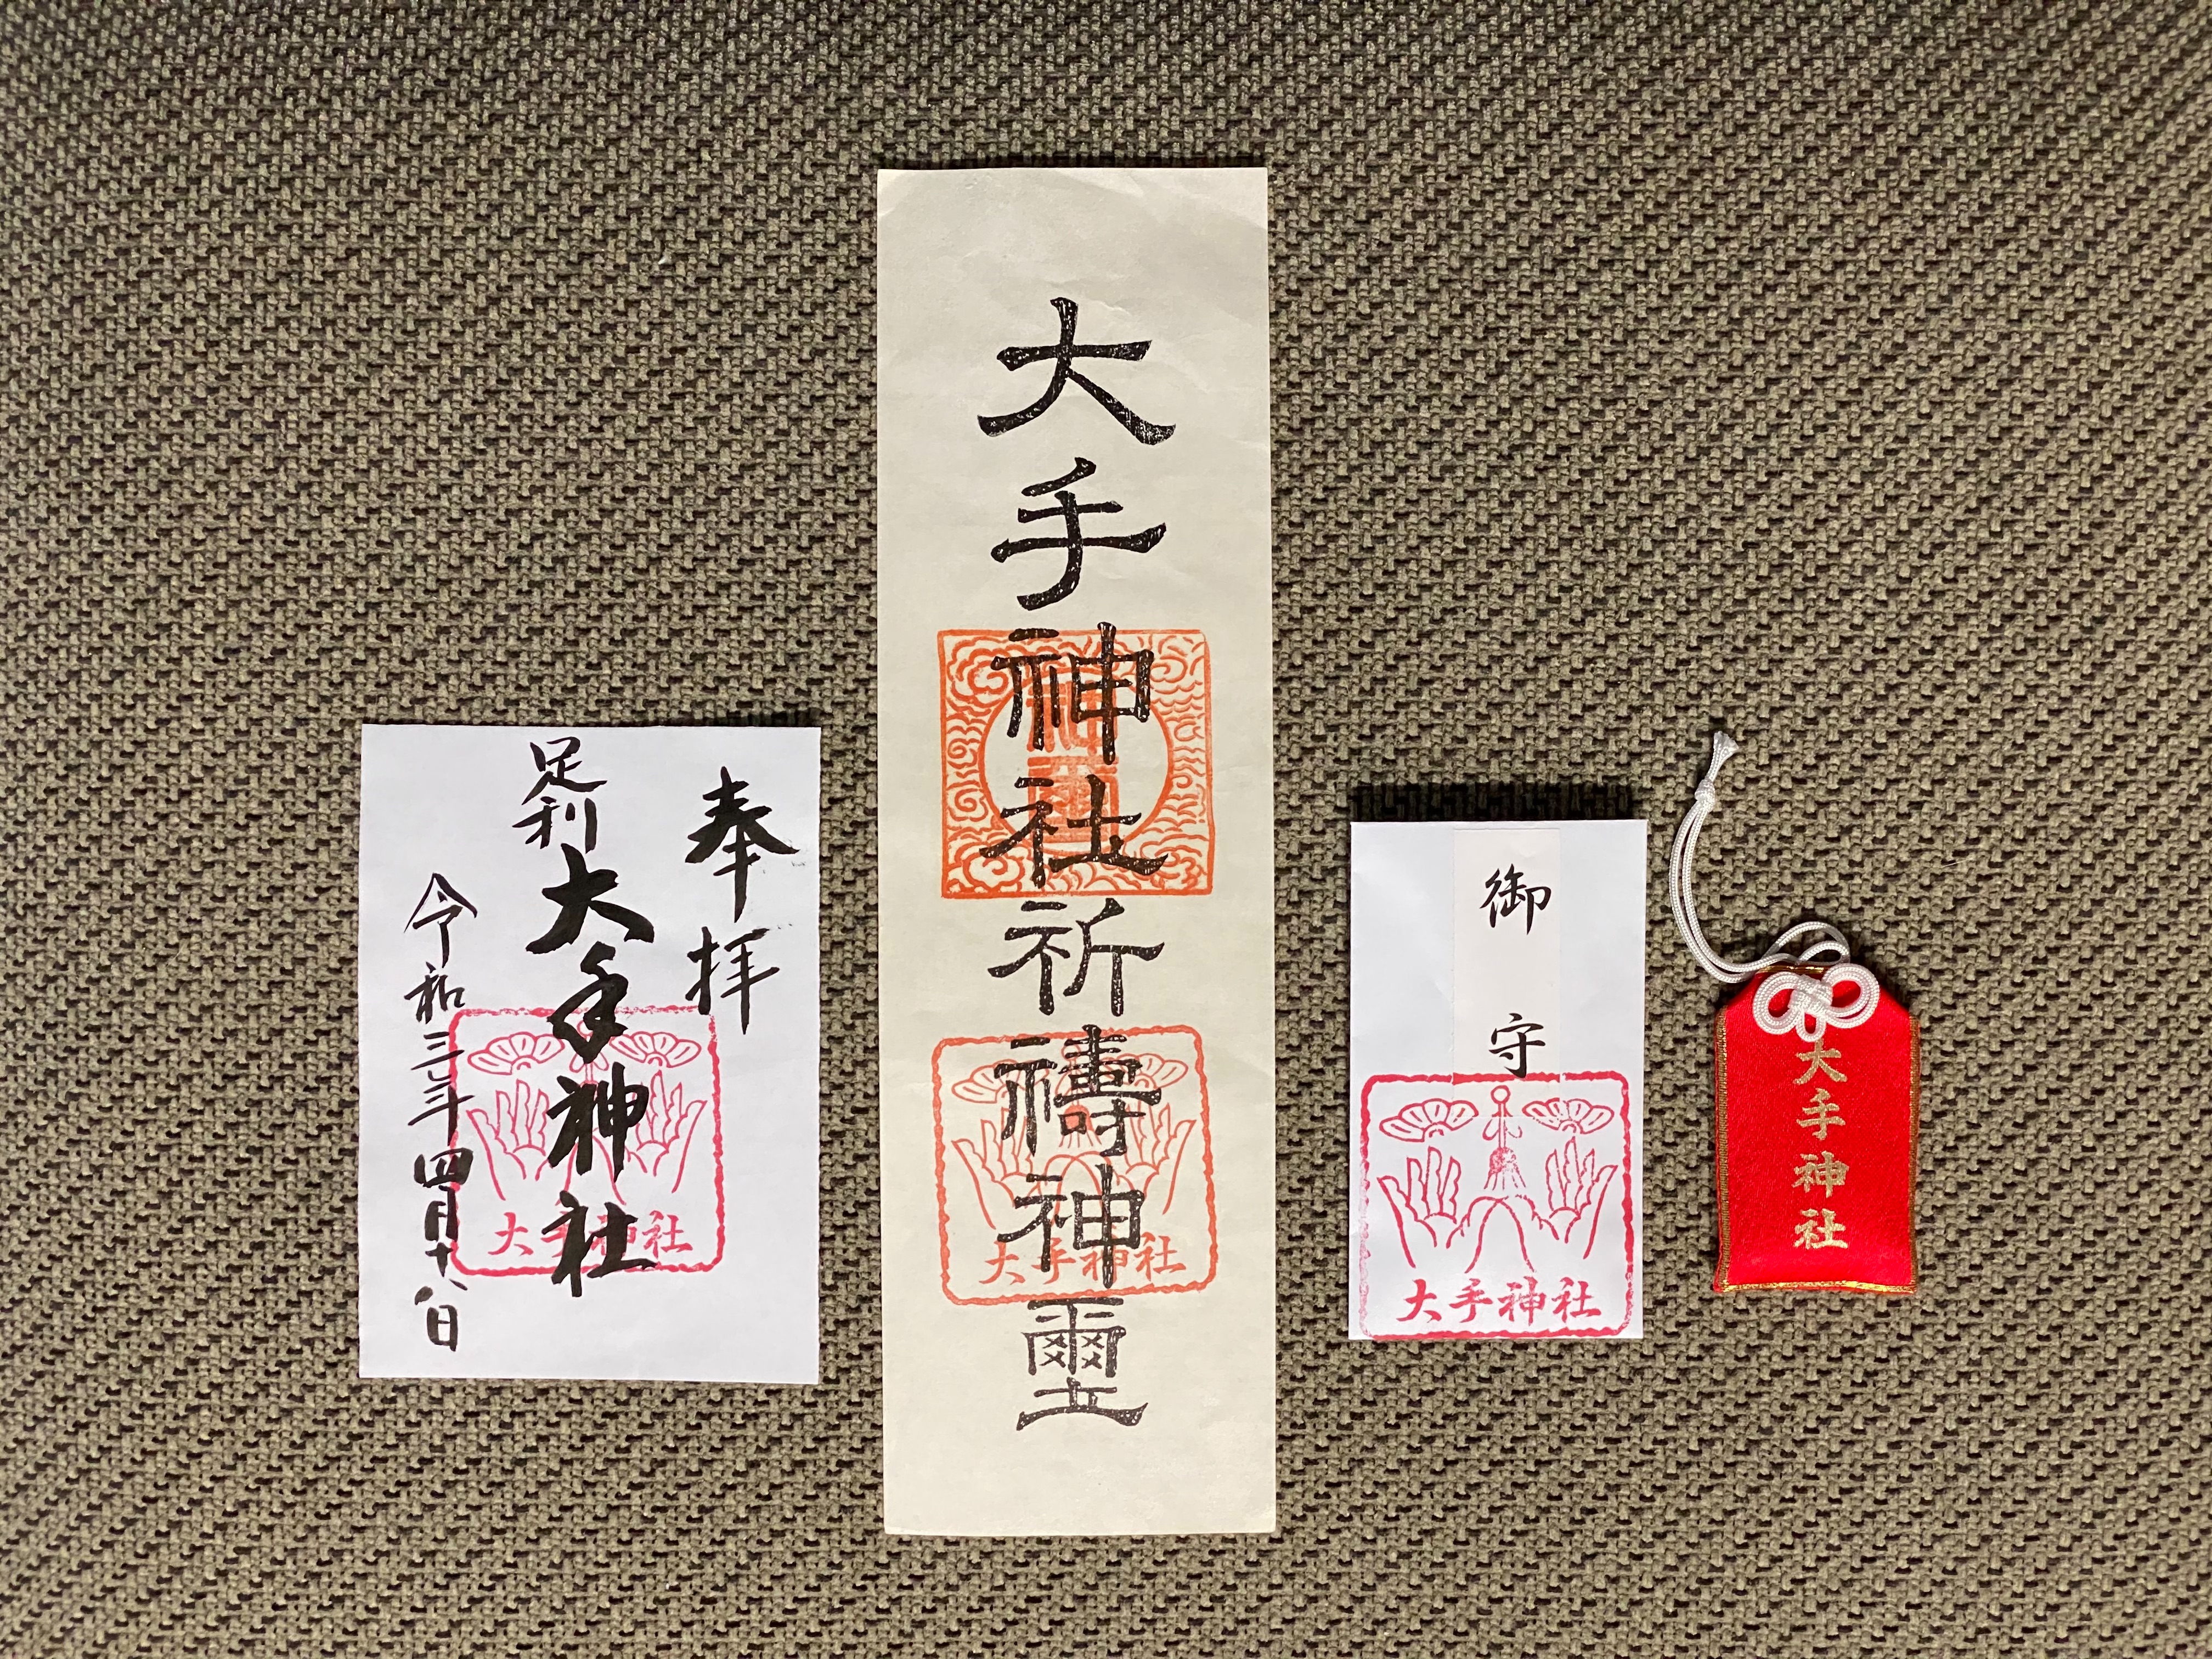 奉拝
足利
大手神社
令和三年四月十八日
大手神社
大手神社祈禱神璽
大手神社
御守
大手神社
大手神社